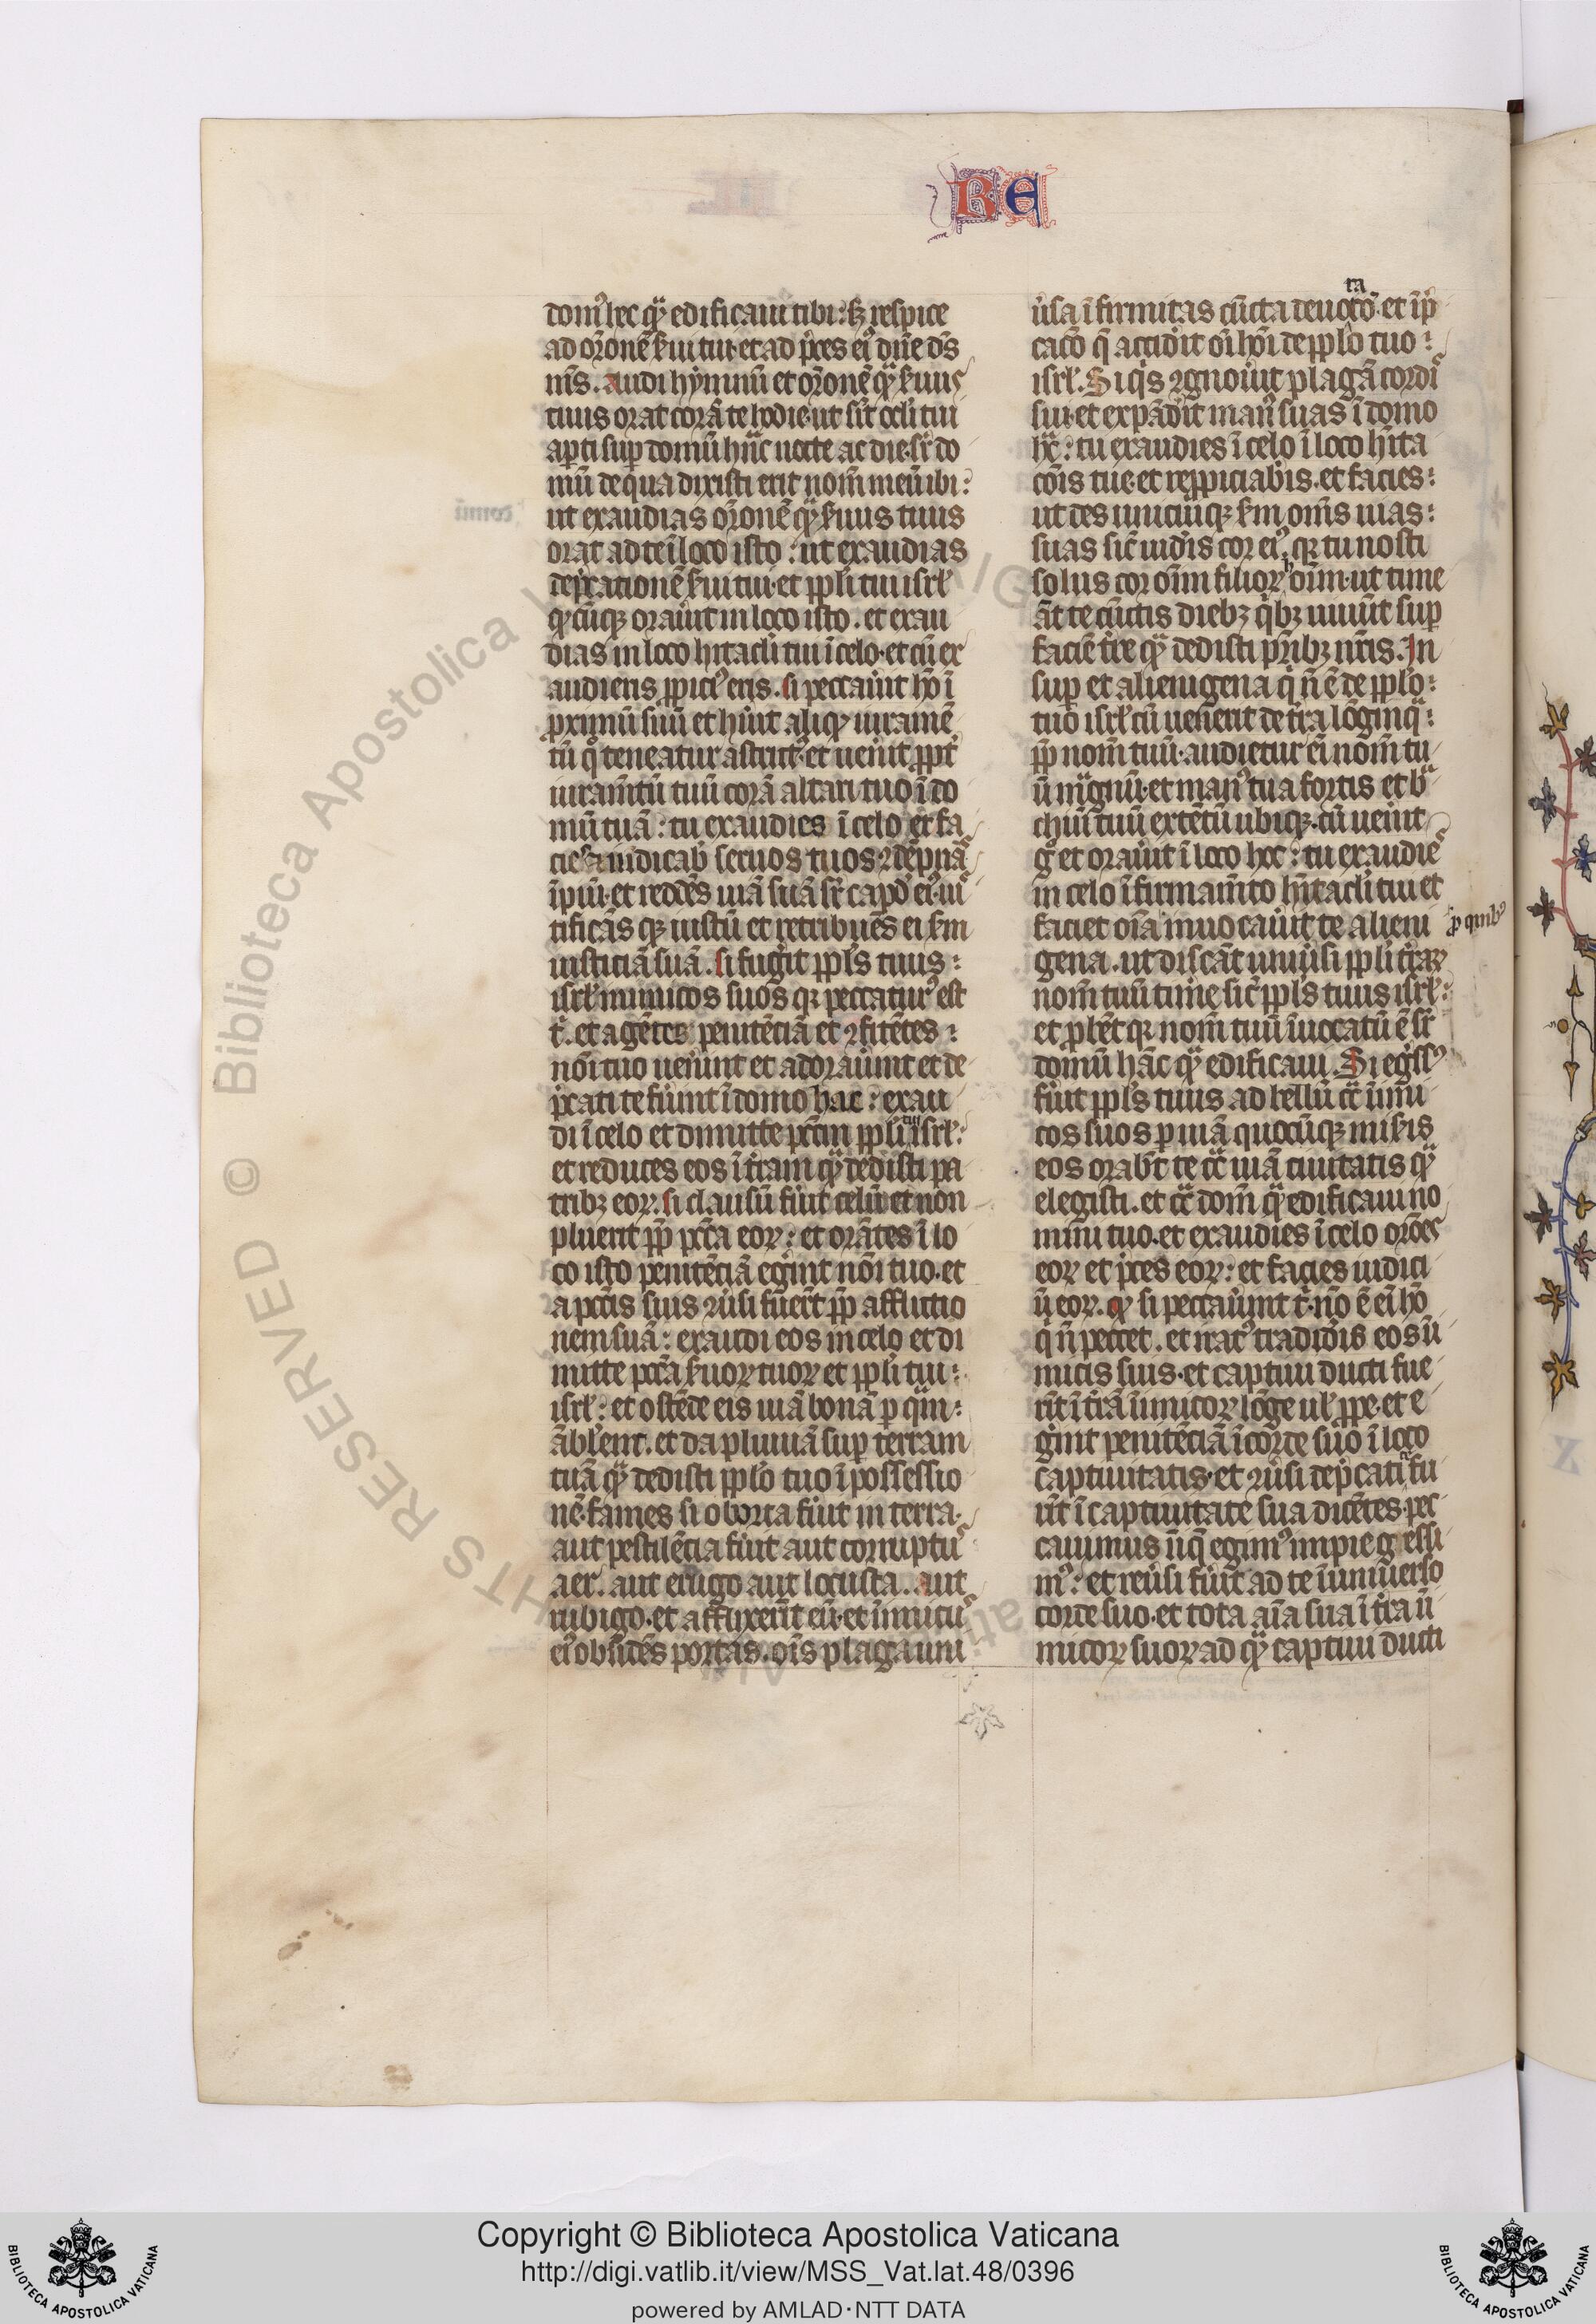 RE
dom᷒ hec qᷓ edificaui tibi: sꝫ respice
ad or̃onẽ ẜui tui. et ad p̃ces ei᷒ dñe ds̃
nr̃s. Audi hymnũ et or̃onẽ qᷓ ẜuus
tuus orat corã te hodie. ut sĩt oc̃li tui
apti sup domũ hãc nocte ac die. sr̃ do
mũ de qua dixisti erit nom̃ meũ ibi:
ut exaudias or̃onẽ qᷓ ẜuus tuus
orat ad te ĩ loco isto: ut exaudias
dep̃cationẽ ẜui tui. et ppl̃i tui isrl̃
qᷓcũqꝫ orau̓int in loco isto. et exau
dias in loco hitacl̃i tui ĩ celo. et cũ ex
audieris ppici᷒ eris. si peccau̓it hõ ĩ
ꝓximũ suũ et hũit aliqᷓ iuramẽ
tũ qᷓ teneatur astrict᷒. et uen̓it ppt̃
iuram̃tũ tuũ corã altari tuo ĩ do
mũ tuã: tu exaudies ĩ celo et fa
cies ⁊ iudicab̃ seruos tuos ꝯdẽpnãs
ĩpiũ. et reddẽs uiã suã sr̃ cap̃d ei᷒. ius
tificãs qꝫ iustũ et retribuẽs ei ẜm
iusticiã suã. si fugit ppl̃s tuus:
isrl̃ inimicos suos qꝛ peccatur᷒ est
t̃. et agẽtes penitẽciã et ꝯfitẽtes:
nõi tuo uen̓int et adorau̓int et de
p̃cati te fũint ĩ domo hac: exau
di ĩ celo et dimitte pctm̃ ppl̃i tui isrl̃:
et reduces eos ĩ t̃ram qᷓ dedisti pa
tribꝫ eoꝝ. si clausũ fũit celũ et non
pluerit pp̃ pctã eoꝝ: et orãtes ĩ lo
co isto penitẽciã eg̃int nõi tuo. et
a pctĩs suis ꝯũsi fuerĩt pp̃ afflictio
nem suã: exaudi eos in celo et di
mitte pctã ẜuoꝝ tuoꝝ et ppl̃i tui:
isrl̃: et ostẽde eis uiã bonã p quã:
ãbl̃ent. et da pluuiã sup terram
tuã qᷓ dedisti ppl̃o tuo ĩ possessio
nẽ. fames si oborta fũit in terra.
aut pestilẽcia fũit aut corruptus
aer. aut erugo aut locusta. aut
rubigo. et afflixerit eũ. et inimicus
ei᷒ obsidẽs portas. oĩs plaga uni
ũsa ĩfirmitas cũcta deuotatõ. et ĩp̃
catõ q̃ accidit oĩ hõi de ppl̃o tuo:
isrl̃. Si qis ꝯgnou̓it plagã cordis
sui. et expãdit man᷒ suas ĩ domo
hac: tu exaudies ĩ celo ĩ loco hita
cõis tue. et reppiciabis. et facies:
ut des unicuiqꝫ ẜm om̃s uias:
suas sic̃ uid̃is cor ei᷒. qꝛ tu nosti
solus cor oĩm filioꝝ hoĩm. ut time
ãt te cũctis diebꝫ qibꝫ uiuũt sup
faciẽ t̃re qᷓ dedisti pr̃ibꝫ nr̃is. In
sup et alienigena qi ñ ẽ de ppl̃o:
tuo isrl̃ cũ uen̓erit de t̃ra lõginqᷓ:
pp̃ nom̃ tuũ. audietur eĩ nom̃ tu
ũ magnũ. et man᷒ tua fortis et bᷓ
chiũ tuũ extẽtũ ubiqꝫ. cũ uen̓it
g̊ et orau̓it ĩ loco hoc: tu exaudies
in celo ĩ firmam̃to hitacl̃i tui et
facies oĩa ꝓ quibꝫ inuocau̓it te alieni
gena. ut discãt uniũsi ppl̃i t̃raꝝ
nom̃ tuũ time sic̃ ppl̃s tuus isrl̃:
et pbẽt qꝛ nom̃ tuũ ĩuocatũ ẽ sr̃
domũ hãc qᷓ edificaui. Si eg̃ss᷒
fũit ppl̃s tuus ad bellũ cõ ĩimi
cos suos p uiã quocũqꝫ mis̃is
eos orabt̃ te cõ uiã ciuitatis qᷓ
elegisti. et cõ dom̃ qᷓ edificaui no
mini tuo. et exaudies ĩ celo or̃oes
eoꝝ et p̃ces eoꝝ: et facies iudici
ũ eoꝝ. qᷓ si peccau̓int t̃. nõ ẽ eĩ hõ
qi ñ peccet. et irat᷒ tradid̃is eos ĩi
micis suis. et captiui ducti fue
rĩt ĩ t̃rã ĩimicoꝝ lõge ul̃ ppe. et e
g̃int penitẽciã ĩ corde suo ĩ loco
captiuitatis. et ꝯũsi dep̃cati te fu
ĩt ĩ captiuitate sua dicẽtes. pec
cauimus iñq̃ egim᷒ impie gessi
m᷒: et reũsi fũit ad te ĩ uniuerso
corde suo. et tota aĩa sua ĩ t̃ra ĩi
micoꝝ suoꝝ ad qᷓ captiui ducti
Copyright © Biblioteca Apostolica Vaticana
http://digi.vatlib.it/view/MSS_Vat.lat.48/0396
powered by AMLAD·NTT DATA